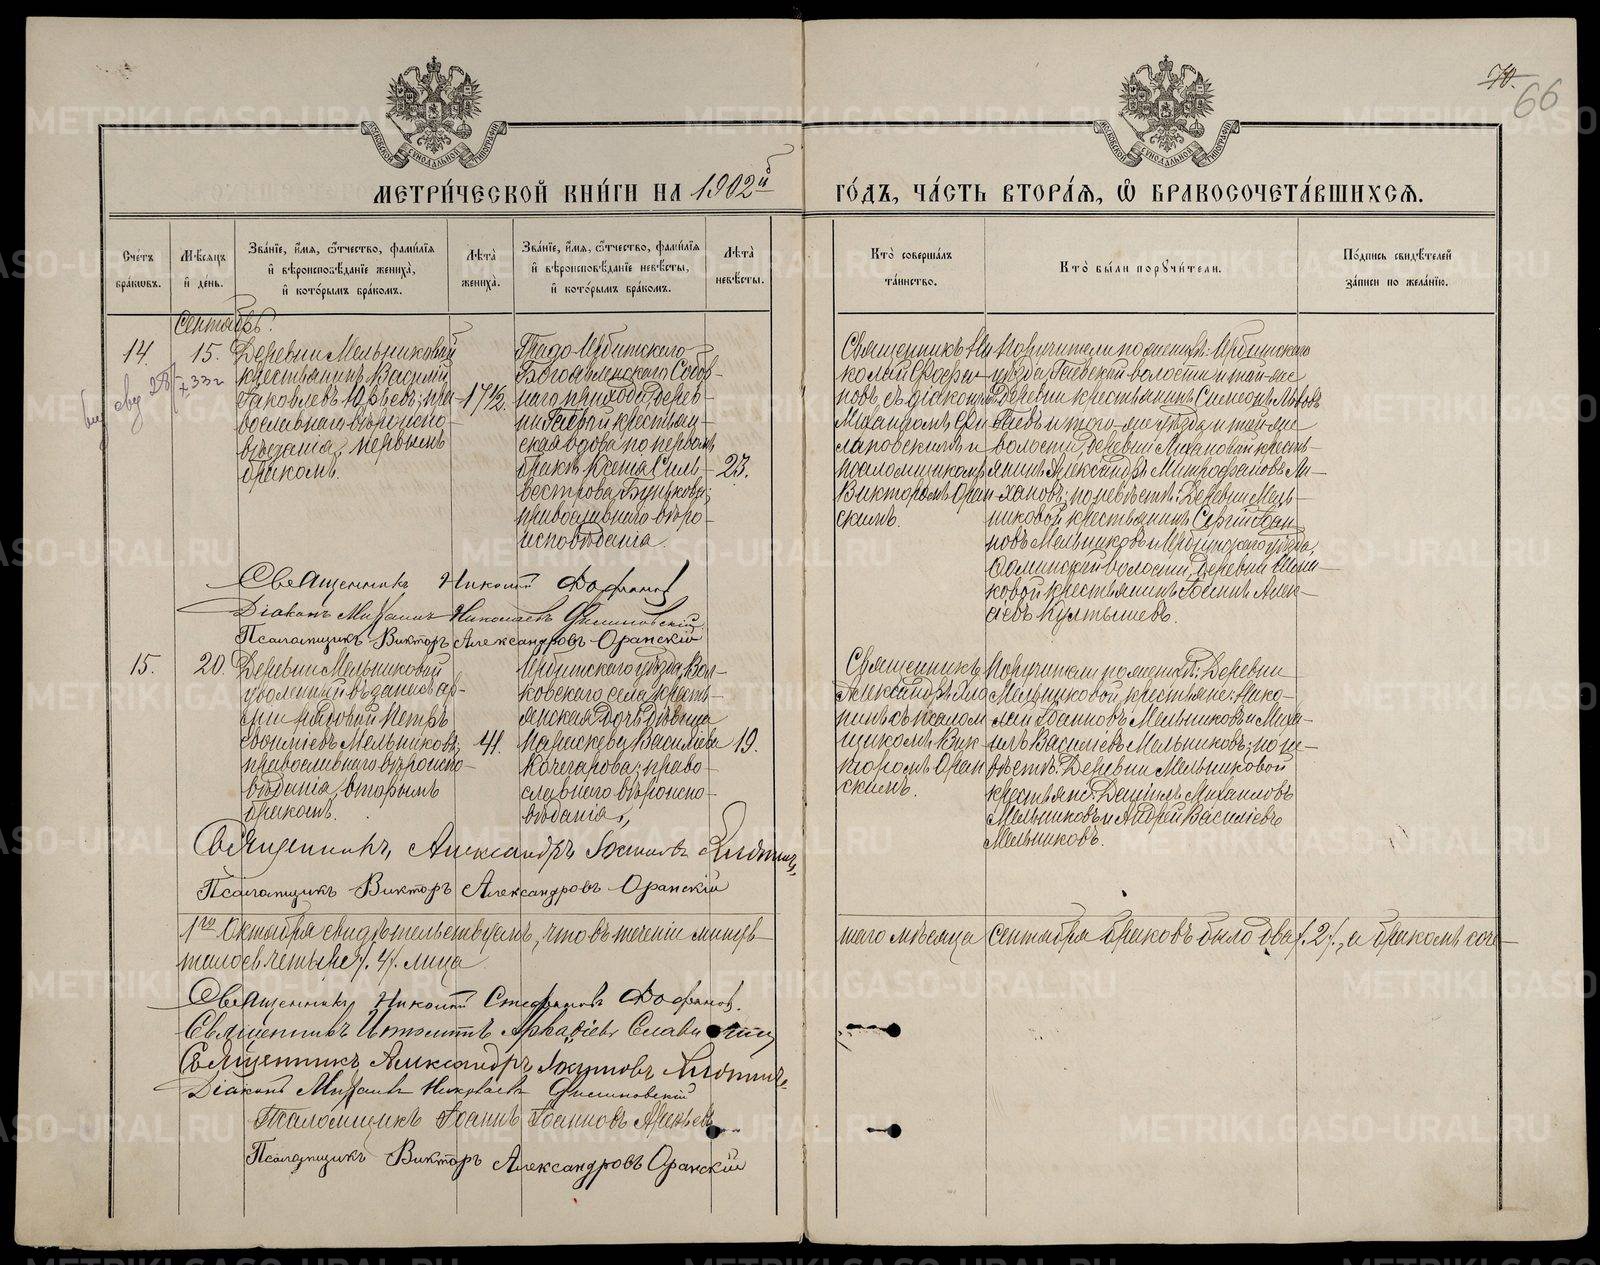 70.
66
МЕТРИЧЕСКОЙ КНИГИ НА 1902й
ГОДЪ, ЧАСТЬ ВТОРАЯ, Ѡ БРАКОСОЧЕТАВШИХСЯ.
Счетъ браковъ.
Мѣсяцъ и день.
Званіе, имя, отчество, фамилія и вѣроисповѣданіе жениха, и которымъ бракомъ.
Лѣта жениха.
Званіе, имя, отчество, фамилія и вѣроисповѣданіе невѣсты, и которымъ бракомъ.
Лѣта невѣсты.
Кто совершалъ таинство.
Кто были поручители.
Подпись свидѣтелей записи по желанію.
Сентябрь.
14.
15.
Деревни Мельниковой
крестьянинъ Василій
Іаковлевъ Юрьевъ; пра-
вославнаго вѣроиспо-
вѣданія, первымъ
бракомъ.
17½.
Градо-Ирбитскаго
Богоявленскаго Собор-
наго прихода, Дерев-
ни Гаевой крестьян-
ская вдова по первомъ
бракѣ Ксенія Силь-
вестрова Бунькова;
православнаго вѣро-
исповѣданія.
23.
Священникъ Ни-
колай
повъ, съ діакономъ
Михаиломъ Фи-
лановскимъ и
псаломщикомъ
Викторомъ Оран-
скимъ.
Поручители по женихѣ: Ирбитскаго
уѣзда, Гаевской волости и той-же
Деревни крестьянинъ Симеонъ Львовъ
Гаевъ и того-же уѣзда и той-же
волости, деревни Механовой кресть-
янинъ Александръ Митрофановъ Ме-
хановъ; по невѣстѣ: Деревни Мель-
никовой крестьянинъ Сергій Іоан-
новъ Мельниковъ и Ирбитскаго уѣзда,
волости, Деревни
ковой крестьянинъ Іосифъ Алек-
сіевъ Култышевъ.
Священникъ Николай
Діаконъ Михаилъ Николаевъ Филановскій
Псаломщикъ Викторъ Александровъ Оранскій
15.
20.
Деревни Мельниковой
уволенный въ запасъ ар-
міи рядовой Петръ
Мельниковъ;
православнаго вѣроиспо-
вѣданія, вторымъ
бракомъ.
41.
Ирбитскаго уѣзда, Вол-
ковскаго села, кресть-
янская дочь дѣвица
Параскева Василіева
Кочегарова; право-
славнаго вѣроиспо-
вѣданія.
19.
Священникъ
Александръ Хло-
пинъ съ псалом-
щикомъ Вик-
торомъ Оран-
скимъ.
Поручители по женихѣ: Деревни
Мельниковой, крестьяне: Нико-
лай Іоанновъ Мельниковъ и Миха-
илъ Василіевъ Мельниковъ; по не-
вѣстѣ: Деревни Мельниковой
крестьяне: Даніилъ Михаиловъ
Мельниковъ и Андрей Василіевъ
Мельниковъ.
Священникъ, Александръ
Псаломщикъ Викторъ Александровъ Оранскій
1го Октября свидѣтельствуемъ, что въ теченіи минув-
шаго мѣсяца сентября браковъ было два /.2/., а бракомъ соче-
талось четыре /.4/. лица.
Священникъ Николай Стефановъ
Священникъ Аркадіевъ
Священникъ Александръ
Діаконъ Михаилъ Николаевъ Филановскій
Псаломщикъ Іоаннъ Іоанновъ
Псаломщикъ Викторъ Александровъ Оранскій
METRIKI.GASO-URAL.RU